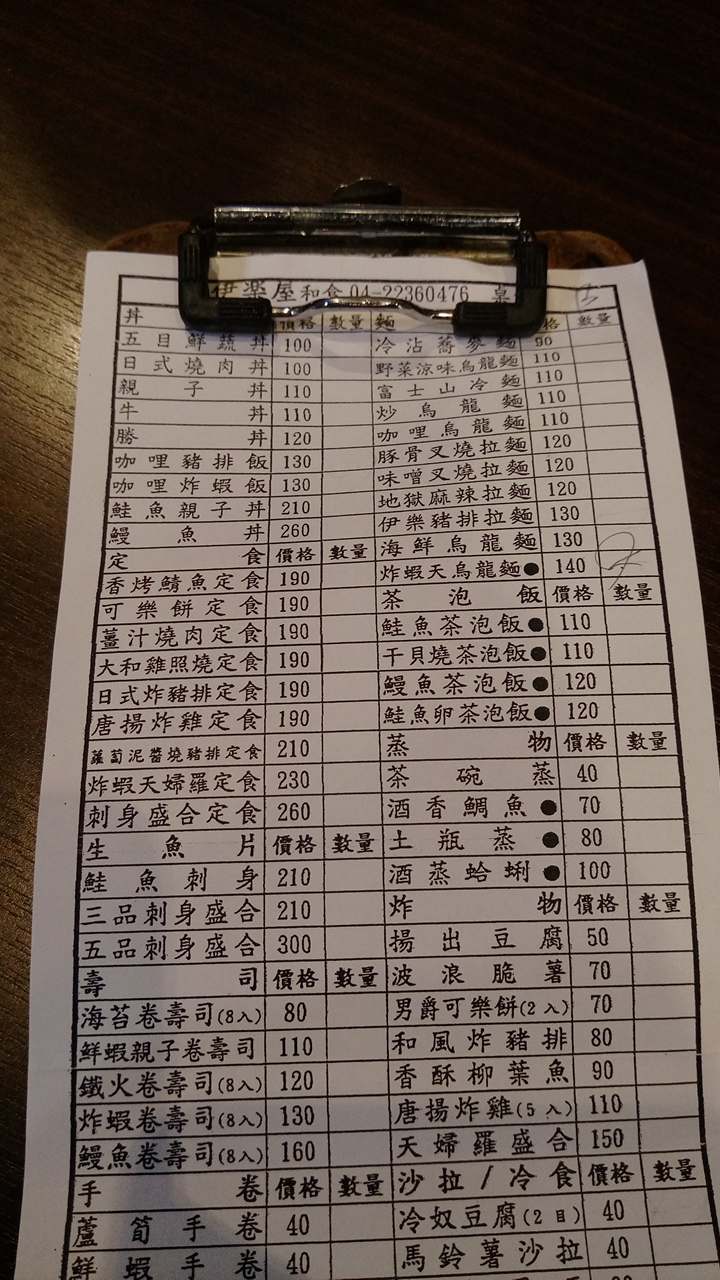 伊樂屋和食 04-22360476 桌
丼 價格 數量 麵 格 數量
五目鮮蔬丼 100 冷沾蕎麥麵 90
日式燒肉丼 100 野菜涼味烏龍麵 110
親子丼 110 富士山冷麵 110
牛丼 110 炒烏龍麵 110
勝丼 120 咖哩烏龍麵 110
咖哩豬排飯 130 豚骨叉燒拉麵 120
咖哩炸蝦飯 130 味噌叉燒拉麵 120
鮭魚親子丼 210 地獄麻辣拉麵 120
鰻魚丼 260 伊樂豬排拉麵 130
定食 價格 數量 海鮮烏龍麵 130
香烤鯖魚定食 190 炸蝦天烏龍麵● 140
可樂餅定食 190 茶泡飯 價格 數量
薑汁燒肉定食 190 鮭魚茶泡飯● 110
大和雞照燒定食 190 干貝燒茶泡飯● 110
日式炸豬排定食 190 鰻魚茶泡飯● 120
唐揚炸雞定食 190 鮭魚卵茶泡飯● 120
蘿蔔泥醬燒豬排定食 210 蒸物 價格 數量
炸蝦天婦羅定食 230 茶碗蒸 40
刺身盛合定食 260 酒香鯛魚● 70
生魚片 價格 數量 土瓶蒸● 80
鮭魚刺身 210 酒蒸蛤蜊● 100
三品刺身盛合 210 炸物 價格 數量
五品刺身盛合 300 揚出豆腐 50
壽司 價格 數量 波浪脆薯 70
海苔卷壽司(8入) 80 男爵可樂餅(2入) 70
鮮蝦親子卷壽司 110 和風炸豬排 80
鐵火卷壽司(8入) 120 香酥柳葉魚 90
炸蝦卷壽司(8入) 130 唐揚炸雞(5入) 110
鰻魚卷壽司(8入) 160 天婦羅盛合 150
手卷 價格 數量 沙拉/冷食 價格 數量
蘆筍手卷 40 冷奴豆腐(2目) 40
鮮蝦手卷 40 馬鈴薯沙拉 40